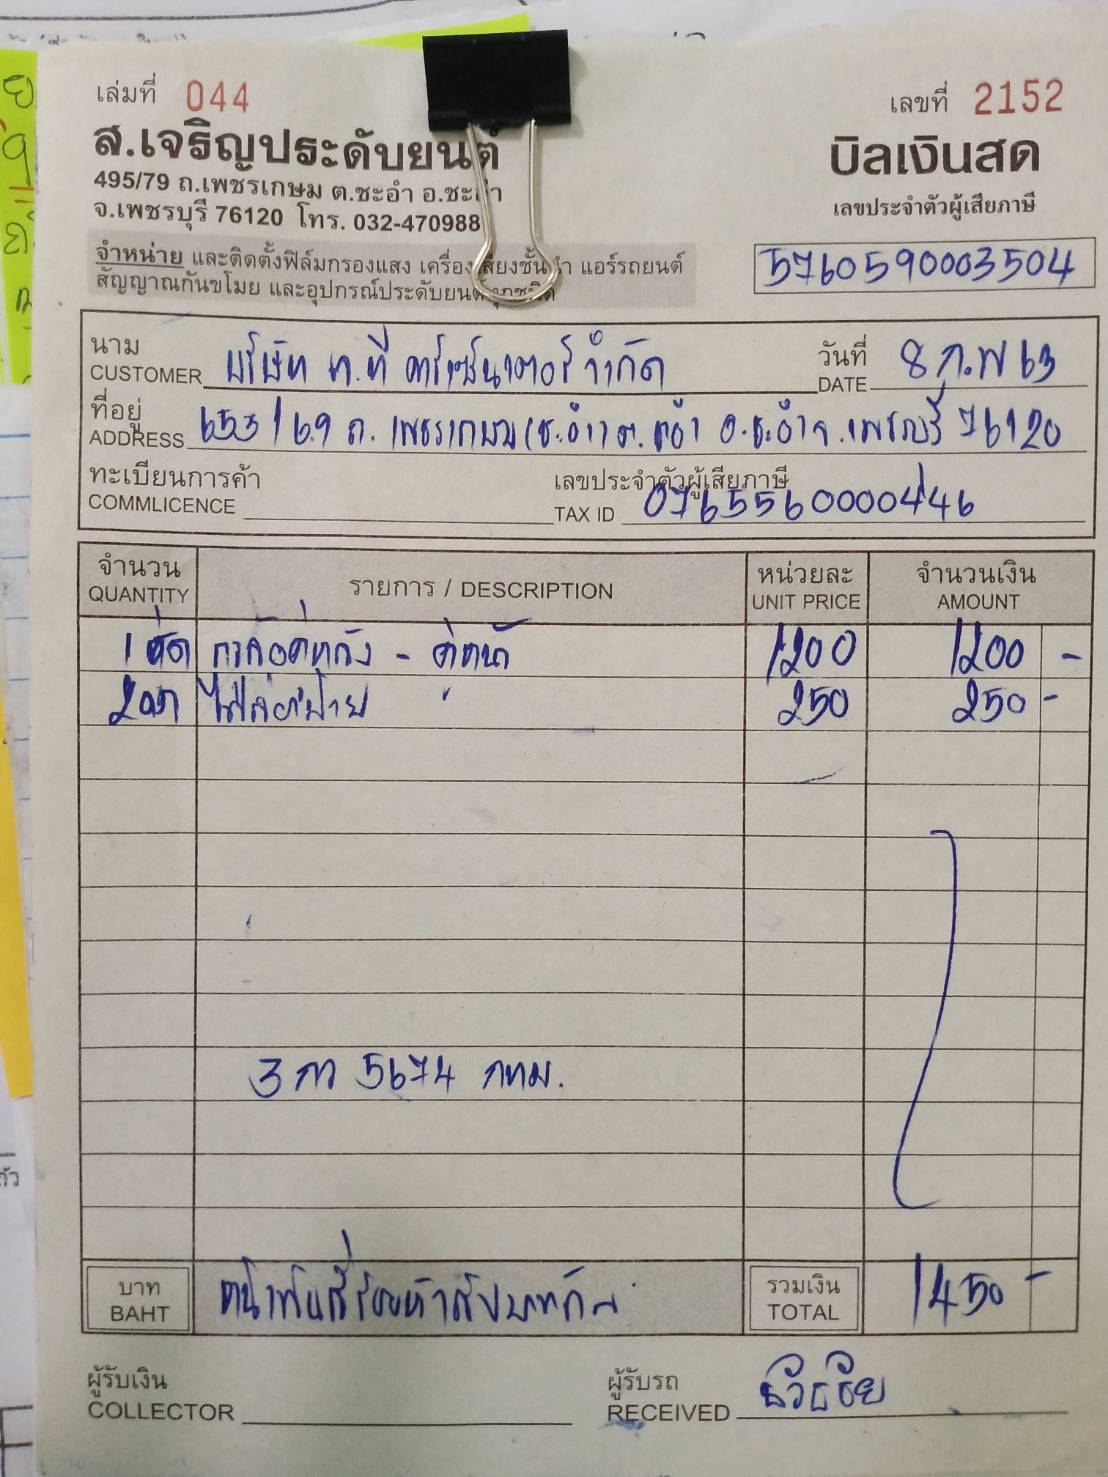 เล่มที่ 044
เลขที่ 2152
ส.เจริญประดับยนต์
บิลเงินสด
495/79 ถ.เพชรเกษม ต.ชะอำ อ.ชะอำ
จ.เพชรบุรี 76120 โทร. 032-470988
เลขประจำตัวผู้เสียภาษี
5760590003504
จำหน่าย และติดตั้งฟิล์มกรองแสง เครื่องเสียงชั้นนำ แอร์รถยนต์
สัญญาณกันขโมย และอุปกรณ์ประดับยนต์ทุกชนิด
นาม บริษัท ท.ที จำกัด วันที่ 8 ก.พ 63
CUSTOMER DATE
ที่อยู่
ADDRESS 653/69 ถ. เพชรเกษม ต.ชะอำ อ.ชะอำ จ.เพชรบุรี 76120
ทะเบียนการค้า เลขประจำตัวผู้เสียภาษี
COMMLICENCE TAX ID 0765560000446
จำนวน รายการ / DESCRIPTION หน่วยละ จำนวนเงิน
QUANTITY UNIT PRICE AMOUNT
1 1200 1200 -
2 250 250 -
3 กว 5674 กทม.
บาท หนึ่งพันสี่ร้อยห้าสิบบาทถ้วน รวมเงิน 1450 -
BAHT TOTAL
ผู้รับเงิน ผู้รับรถ
COLLECTOR RECEIVED